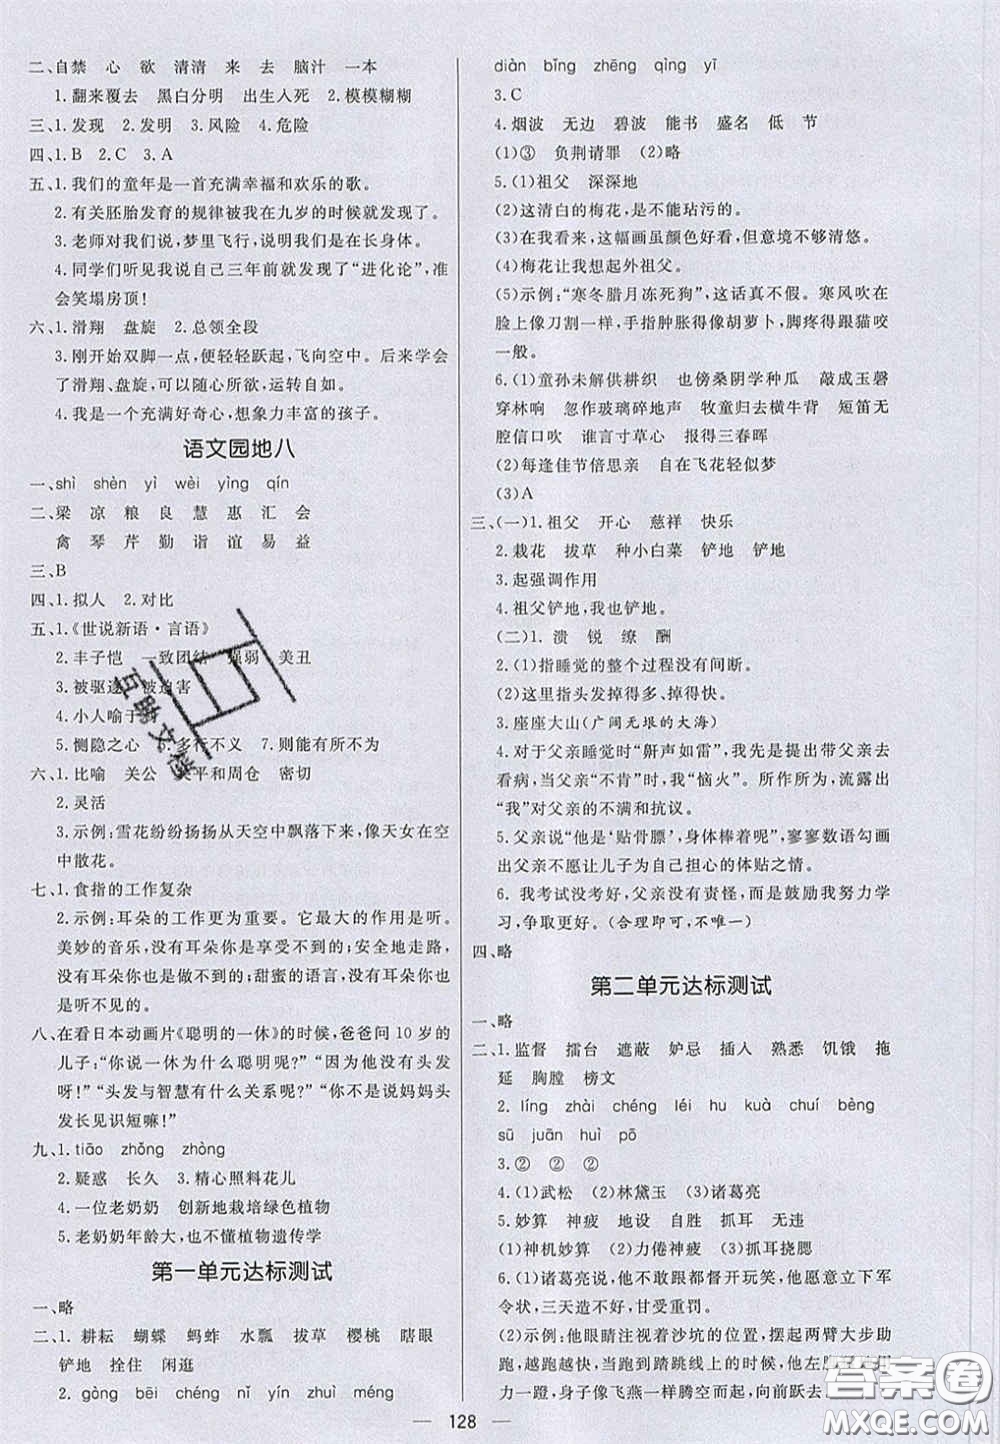 二、自禁 心 欲 清清 来 去 脑汁 一本
1.翻来覆去 黑白分明 出生入死 2.模模糊糊
三、1.发现 2.发明 3.风险 4.危险
四、1.B 2.C 3.A
五、1.我们的童年是一首充满幸福和欢乐的歌。
2.有关胚胎发育的规律被我在九岁的时候就发现了。
3.老师对我们说,梦里飞行,说明我们是在长身体。
4.同学们听见我说自己三年前就发现了“进化论”,准
会笑塌房顶!
六、1.滑翔 盘旋 2.总领全段
3.刚开始双脚一点,便轻轻跃起,飞向空中。后来学会
了滑翔、盘旋,可以随心所欲,运转自如。
4.我是一个充满好奇心、想象力丰富的孩子。
语文园地八
一、shì shèn yì wèi yìng qín
二、梁 凉 粮 良 慧 惠 汇 会
禽 琴 芹 勤 诣 谊 易 益
三、B
四、1.拟人 2.对比
五、1.《世说新语·言语》
2.丰子恺 一致团结 强弱 美丑
3.被驱逐 被迫害
4.小人喻于
5.恻隐之心 6.多行不义 7.则能有所不为
六、1.比喻 关公 平和周仓 密切
2.灵活
3.示例:雪花纷纷扬扬从天空中飘落下来,像天女在空
中散花。
七、1.食指的工作复杂
2.示例:耳朵的工作更为重要。它最大的作用是听。
美妙的音乐,没有耳朵你是享受不到的;安全地走路,
没有耳朵你是做不到的;甜蜜的语言,没有耳朵你是
听不见的。
八、在看日本动画片《聪明的一休》的时候,爸爸问 10 岁的
儿子:“你说一休为什么聪明呢?”“因为他没有头发
呀!”“头发与智慧有什么关系呢?”“你不是说妈妈头
发长见识短嘛!”
九、1.tiāo zhǒng zhòng
2.疑惑 长久 3.精心照料花儿
4.一位老奶奶 创新地栽培绿色植物
5.老奶奶年龄大,也不懂植物遗传学
第一单元达标测试
一、略
二、1.耕耘 蝴蝶 蚂蚱 水瓢 拔草 樱桃 瞎眼
铲地 拴住 闲逛
2.gòng bēi chéng nǐ yín zhuì méng
diàn bǐng zhēng qìng yǐ
3.C
4.烟波 无边 碧波 能书 盛名 低 节
(1)③ 负荆请罪 (2)略
5.(1)祖父 深深地
(2)这清白的梅花,是不能玷污的。
(3)在我看来,这幅画虽颜色好看,但意境不够清悠。
(4)梅花让我想起外祖父。
(5)示例:“寒冬腊月冻死狗”,这话真不假。寒风吹在
脸上像刀割一样,手指肿胀得像胡萝卜,脚疼得跟猫咬
一般。
6.(1)童孙未解供耕织 也傍桑阴学种瓜 敲成玉磬
穿林响 忽作玻璃碎地声 牧童归去横牛背 短笛无
腔信口吹 谁言寸草心 报得三春晖
(2)每逢佳节倍思亲 自在飞花轻似梦
(3)A
三、(一)1.祖父 开心 慈祥 快乐
2.栽花 拔草 种小白菜 铲地 铲地
3.起强调作用
4.祖父铲地,我也铲地。
(二)1.溃 锐 缭 酬
2.(1)指睡觉的整个过程没有间断。
(2)这里指头发掉得多、掉得快。
3.座座大山(广阔无垠的大海)
4.对于父亲睡觉时“鼾声如雷”,我先是提出带父亲去
看病,当父亲“不肯”时,我“恼火”。所作所为,流露出
“我”对父亲的不满和抗议。
5.父亲说“他是‘贴骨膘’,身体棒着呢”,寥寥数语勾画
出父亲不愿让儿子为自己担心的体贴之情。
6.我考试没考好,父亲没有责怪,而是鼓励我努力学
习,争取更好。(合理即可,不唯一)
四、略
第二单元达标测试
一、略
二、1.监督 擂台 遮蔽 妒忌 插人 熟悉 饥饿 拖
延 胸膛 榜文
2.líng zhài chéng léi hu kuà chuí bèng
sū juān huì pō
3.② ② ②
4.(1)武松 (2)林黛玉 (3)诸葛亮
5.妙算 神疲 地设 自胜 抓耳 无违
(1)神机妙算 (2)力倦神疲 (3)抓耳挠腮
6.(1)诸葛亮说,他不敢跟都督开玩笑,他愿意立下军
令状,三天造不好,甘受重罚。
(2)示例:他眼睛注视着沙坑的位置,摆起两臂大步助
跑,越跑越快;当跑到踏跳线上的时候,他左脚
力一蹬,身子像飞燕一样腾空而起,向前跃去
128
互助文档
答案圈
MXQE.COM